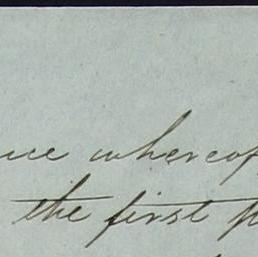 whereof
the first